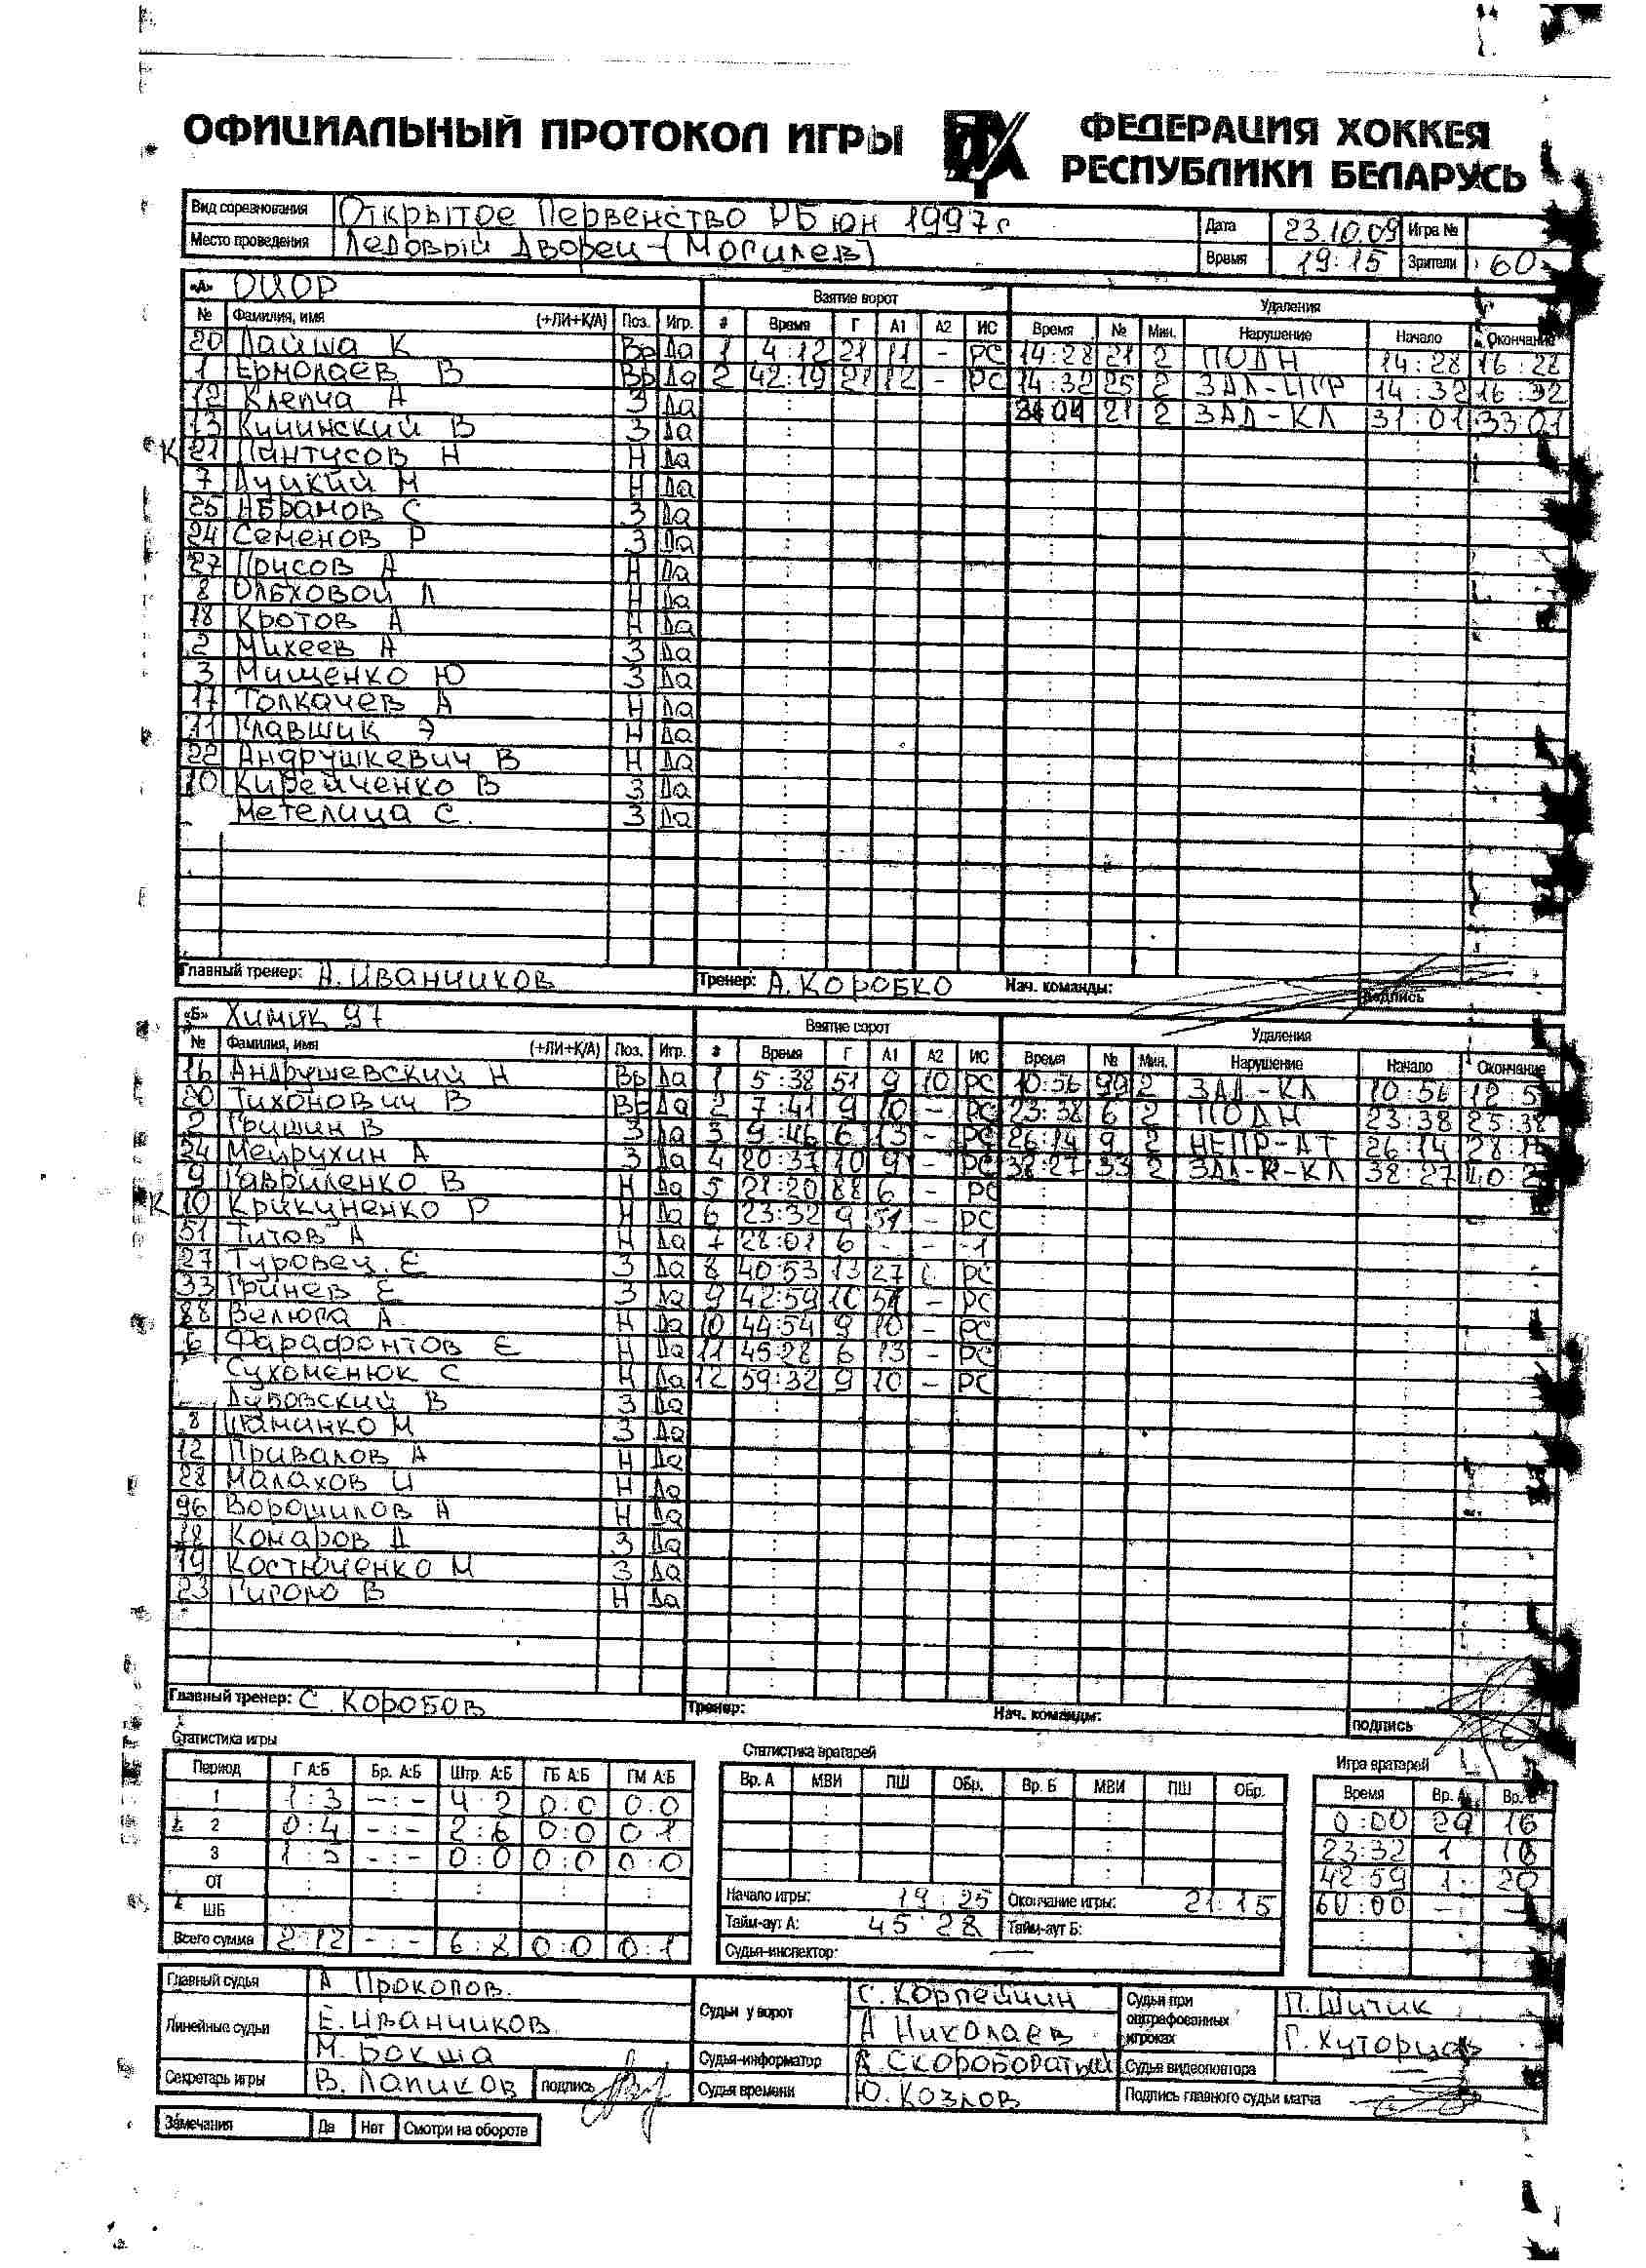 ОФИЦИАЛЬНЫЙ ПРОТОКОЛ ИГРЫ
ФЕДЕРАЦИЯ ХОККЕЯ
РЕСПУБЛИКИ БЕЛАРУСЬ
Вид соревнования Открытое Первенство РБ юн 1997г Дата 23.10.09 Игра №
Место проведения Ледовый Дворец (Могилев) Время 19:15 Зрители 60
«А» ОЦОР Взятие ворот Удаления
№ Фамилия, имя (+ЛИ+К/А) Поз. Игр. # Время Г А1 А2 ИС Время № Мин. Нарушение Начало Окончание
20 Лайша К Вр Да 1 4:12 21 11 - РС 14:28 21 2 ПОДН 14:28 16:28
1 Ермолаев В Вр Да 2 42:19 21 12 - РС 14:32 25 2 14:32 16:32
12 Клепча А З Да 21 2 ЗАД-КЛ 31:01 33:01
13 Кучинский В З Да
К 21 Пантусов Н Н Да
7 Луцкий М Н Да
25 Абрамов С З Да
24 Семенов Р З Да
27 Прусов А Н Да
8 Ольховой Л Н Да
18 Кротов А Н Да
2 Михеев А З Да
3 Мищенко Ю З Да
17 Толкачев А Н Да
11 Главшик Э Н Да
22 Андрушкевич В Н Да
10 Кирейченко В З Да
Метелица С. З Да
Главный тренер: А. Иванчиков Тренер: А. Коробко Нач. команды: подпись
«Б» Химик 97 Взятие ворот Удаления
№ Фамилия, имя (+ЛИ+К/А) Поз. Игр. # Время Г А1 А2 ИС Время № Мин. Нарушение Начало Окончание
16 Андрушевский Н Вр Да 1 5:38 51 9 10 РС 10:56 99 2 ЗАД-КЛ 10:56
20 Тихонович В Вр Да 2 7:41 9 10 - РС 23:38 6 2 ПОДН 23:38 25:38
2 Гришин В З Да 3 9:46 6 13 - РС 26:14 9 2 НЕПР-АТ 26:14
24 Мейрухин А З Да 4 20:37 10 9 - РС 38:27 33 2 38:27
9 Гавриленко В Н Да 5 21:20 88 6 - РС
К 10 Крикуненко Р Н Да 6 23:32 9 51 - РС
51 Титов А Н Да 7 28:01 6 - - -1
27 Туровец Е З Да 8 40:53 13 27 РС
33 Гринев Е З Да 9 42:59 51 - РС
88 Велюга А Н Да 10 44:54 9 10 - РС
6 Фарафонтов Е Н Да 11 45:28 6 13 - РС
Сухоменюк С Н Да 12 59:32 9 10 - РС
Дубовский В З Да
8 М З Да
12 Привалов А Н Да
28 Малахов И Н Да
96 Ворошилов А Н Да
18 Комаров Д З Да
19 Костюченко М З Да
23 В Н Да
Главный тренер: С. Коробов Тренер: Нач. команды: подпись
Статистика игры Статистика вратарей Игра вратарей
Период Г А:Б Бр. А:Б Штр. А:Б ГБ А:Б ГМ А:Б Вр. А МВИ ПШ ОБр. Вр. Б МВИ ПШ ОБр. Время Вр. А Вр. Б
1 1:3 -:- 4:2 0:0 0:0 0:00 20 16
2 0:4 -:- 2:6 0:0 0:1 23:32 1 16
3 1:5 -:- 0:0 0:0 0:0 42:59 1 20
ОТ Начало игры: 19:25 Окончание игры: 21:15 60:00 - -
ШБ Тайм-аут А: 45:28 Тайм-аут Б:
Всего сумма 2:12 -:- 6:8 0:0 0:1 Судья-инспектор: —
Главный судья А Прокопов. Судьи у ворот С. Корпейчин Судьи при оштрафованных игроках П. Шичик
Линейные судьи Е. Иванчиков А Николаев Г.
М. Бокша Судья-информатор А. Скоробогатый Судья видеоповтора
Секретарь игры В. Лапиков подпись Судья времени Ю. Козлов Подпись главного судьи матча
Замечания Да Нет Смотри на обороте